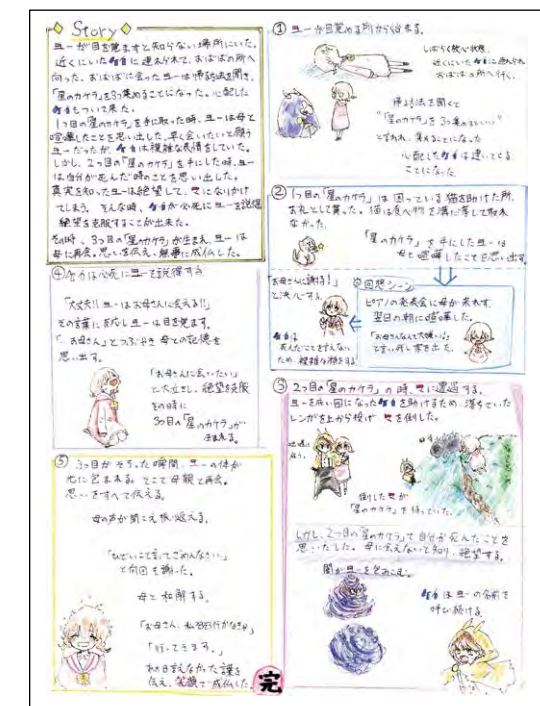 Story
ユーが目を覚ますと知らない場所にいた。
近くにいた に連れられて、おばばの所へ
向った。おばばに会ったユーは帰る方法を聞き、
「星のカケラ」を3つ集めることになった。心配した
もついて来た。
1つ目の星のカケラを手に取った時、ユーは母と
喧嘩したことを思い出した。早く会いたいと願う
ユーだったが、 は複雑な表情をしていた。
しかし、2つ目の「星のカケラ」を手にした時、ユー
は自分が死んだ時のことを思い出した。
真実を知ったユーは絶望して、 になりかけ
てしまう。そんな時、 が必死にユーを説得
絶望を克服することが出来た。
その時、3つ目の「星のカケラ」が生まれ、ユーは
母に再会。思いを伝え、無事に成仏した。
① ユーが目覚める所から始まる。
しばらく放心状態。
近くにいた に連れられ
おばばの所へ行く。
帰る方法を聞くと
"「星のカケラ」を3つ集めるといい"
と言われ、集めることになった
心配した は着いてくる
ことになった。
② 1つ目の「星のカケラ」は困っている猫を助けた所、
お礼として貰った。猫は食べ物を溝に落して取れ
なかった。
「星のカケラ」を手にしたユーは
母と喧嘩したことを思い出す。
回想シーン
ピアノの発表会に母が来れず、
翌日の朝に喧嘩した。
「お母さんなんて大嫌い」
と言い残し家を出た。
「お母さんに謝待!」
と決心する。
は
死んだことを言えない
ため、複雑な顔をする。
③ 2つ目の「星のカケラ」の時、 に遭遇する。
ユーを庇い囮になった を助けるため、落ちていた
レンガを上から投げ を倒した。
倒した が
「星のカケラ」を持っていた。
しかし、2つ目の「星のカケラ」で自分が死んだことを
思いだした。母に会えないと知り、絶望する。
闇がユーを包みこむ。
はユーの名前を
呼び続ける
④ は必死にユーを説得する
「大丈夫!! ユーはお母さんに会える!!」
その言葉に反応しユーは目を覚ます。
「お母さん」とつぶやき母との記憶を
思い出す。
「お母さんに会いたい」
と大泣きし、絶望を克服
その時に
3つ目の「星のカケラ」が
生まれる。
⑤ 3つ目がそろった瞬間、ユーの体が
光に包まれる。そこで母親と再会。
思いをすべて伝える。
母の声が聞こえ振り返える。
「ひどいこと言ってごめんなさい」
と何回も謝った。
母と和解する。
「お母さん、私 行かなきゃ」
「行ってきます。」
あの日言えなかった言葉を
伝え、笑顔で成仏した。
完